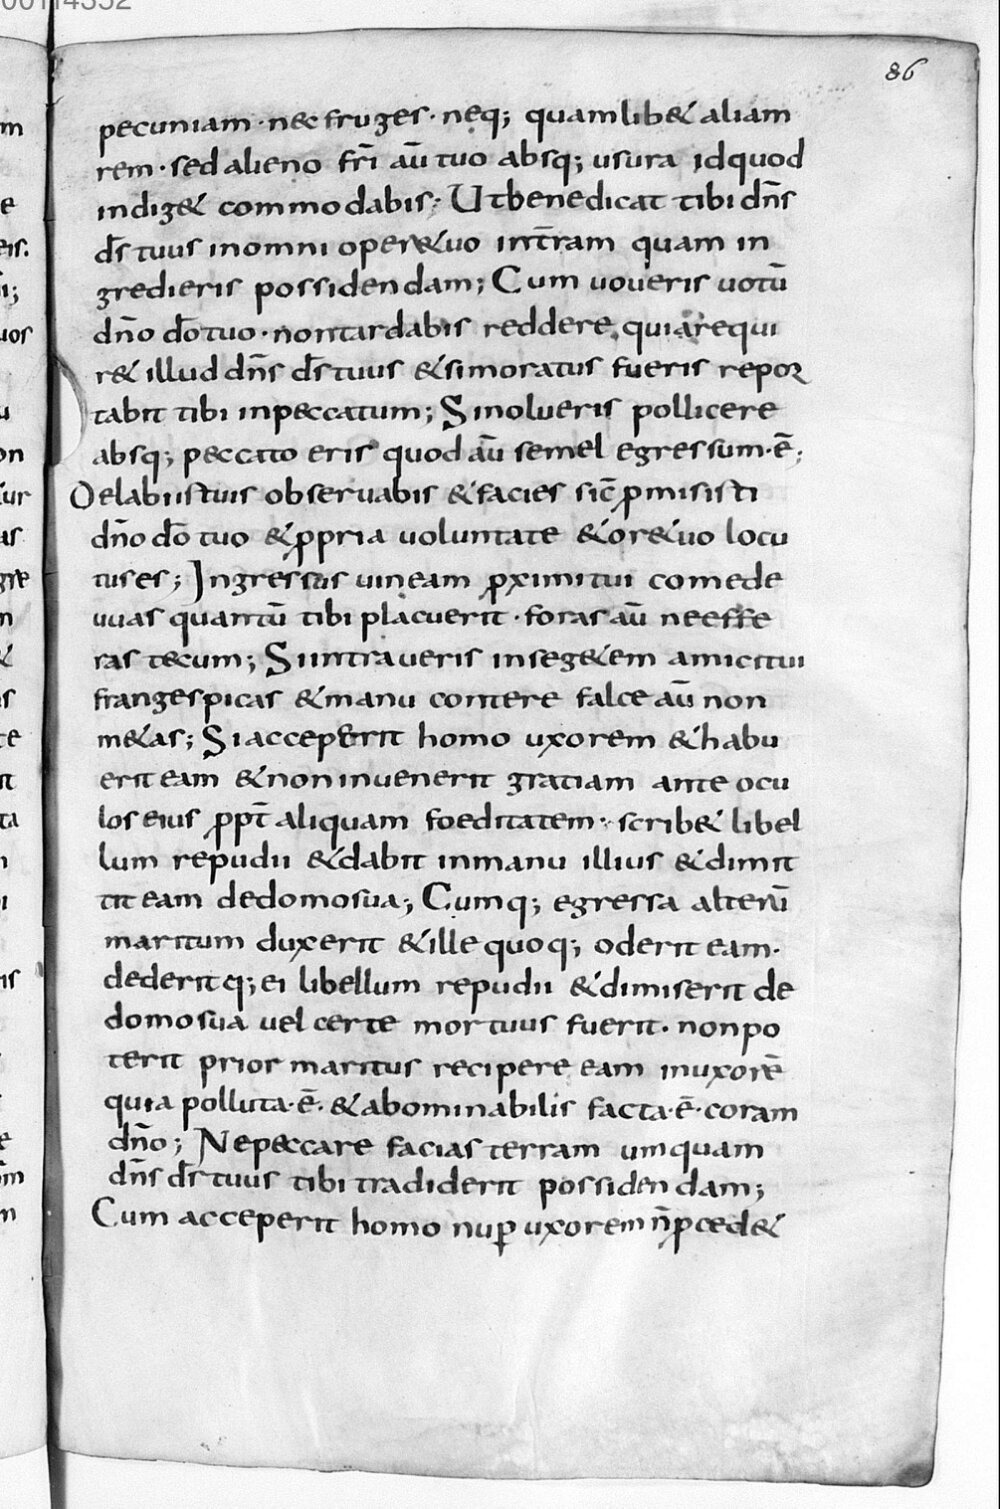 00114352
86
pecuniam · nec fruges · neq; quamlib& aliam
rem · sed alieno fr̄i aū tuo absq; usura id quod
indig& commodabis; Ut benedicat tibi dn̄s
ds̄ tuus in omni oper& uo in tr̄am quam in
gredieris possidendam; Cum uoueris uotū
dn̄o dō tuo · non tardabis reddere, quia requi
r& illud dn̄s ds̄ tuus & si moratus fueris repor
tabit tibi in peccatum; Si nolueris pollicere
absq; peccato eris quod aū semel egressum · ē;
De labiis tuis obseruabis & facies sic̄ ꝓmisisti
dn̄o dō tuo & ꝓpria uoluntate & or& uo locu
tus es; Ingressus uineam ꝓximi tui comede
uuas quantū tibi placuerit · foras aū ne effe
ras tecum; Si intraueris in seg&em amici tui
franges picas & manu contere falce aū non
m&as; Si acceperit homo uxorem & habu
erit eam & non inuenerit gratiam ante ocu
los eius ꝓpt̄ aliquam foeditatem · scrib& libel
lum repudii & dabit in manu illius & dimit
tit eam de domo sua; Cumq; egressa alterū
maritum duxerit & ille quoq; oderit eam ·
dederitq; ei libellum repudii & dimiserit de
domo sua uel certe mortuus fuerit · non po
terit prior maritus recipere eam in uxorē
quia polluta · ē · & abominabilis facta · ē · coram
dn̄o; Ne peccare facias terram umquam
dn̄s ds̄ tuus tibi tradiderit possidendam;
Cum acceperit homo nuꝑ uxorem n̄ ꝓced&